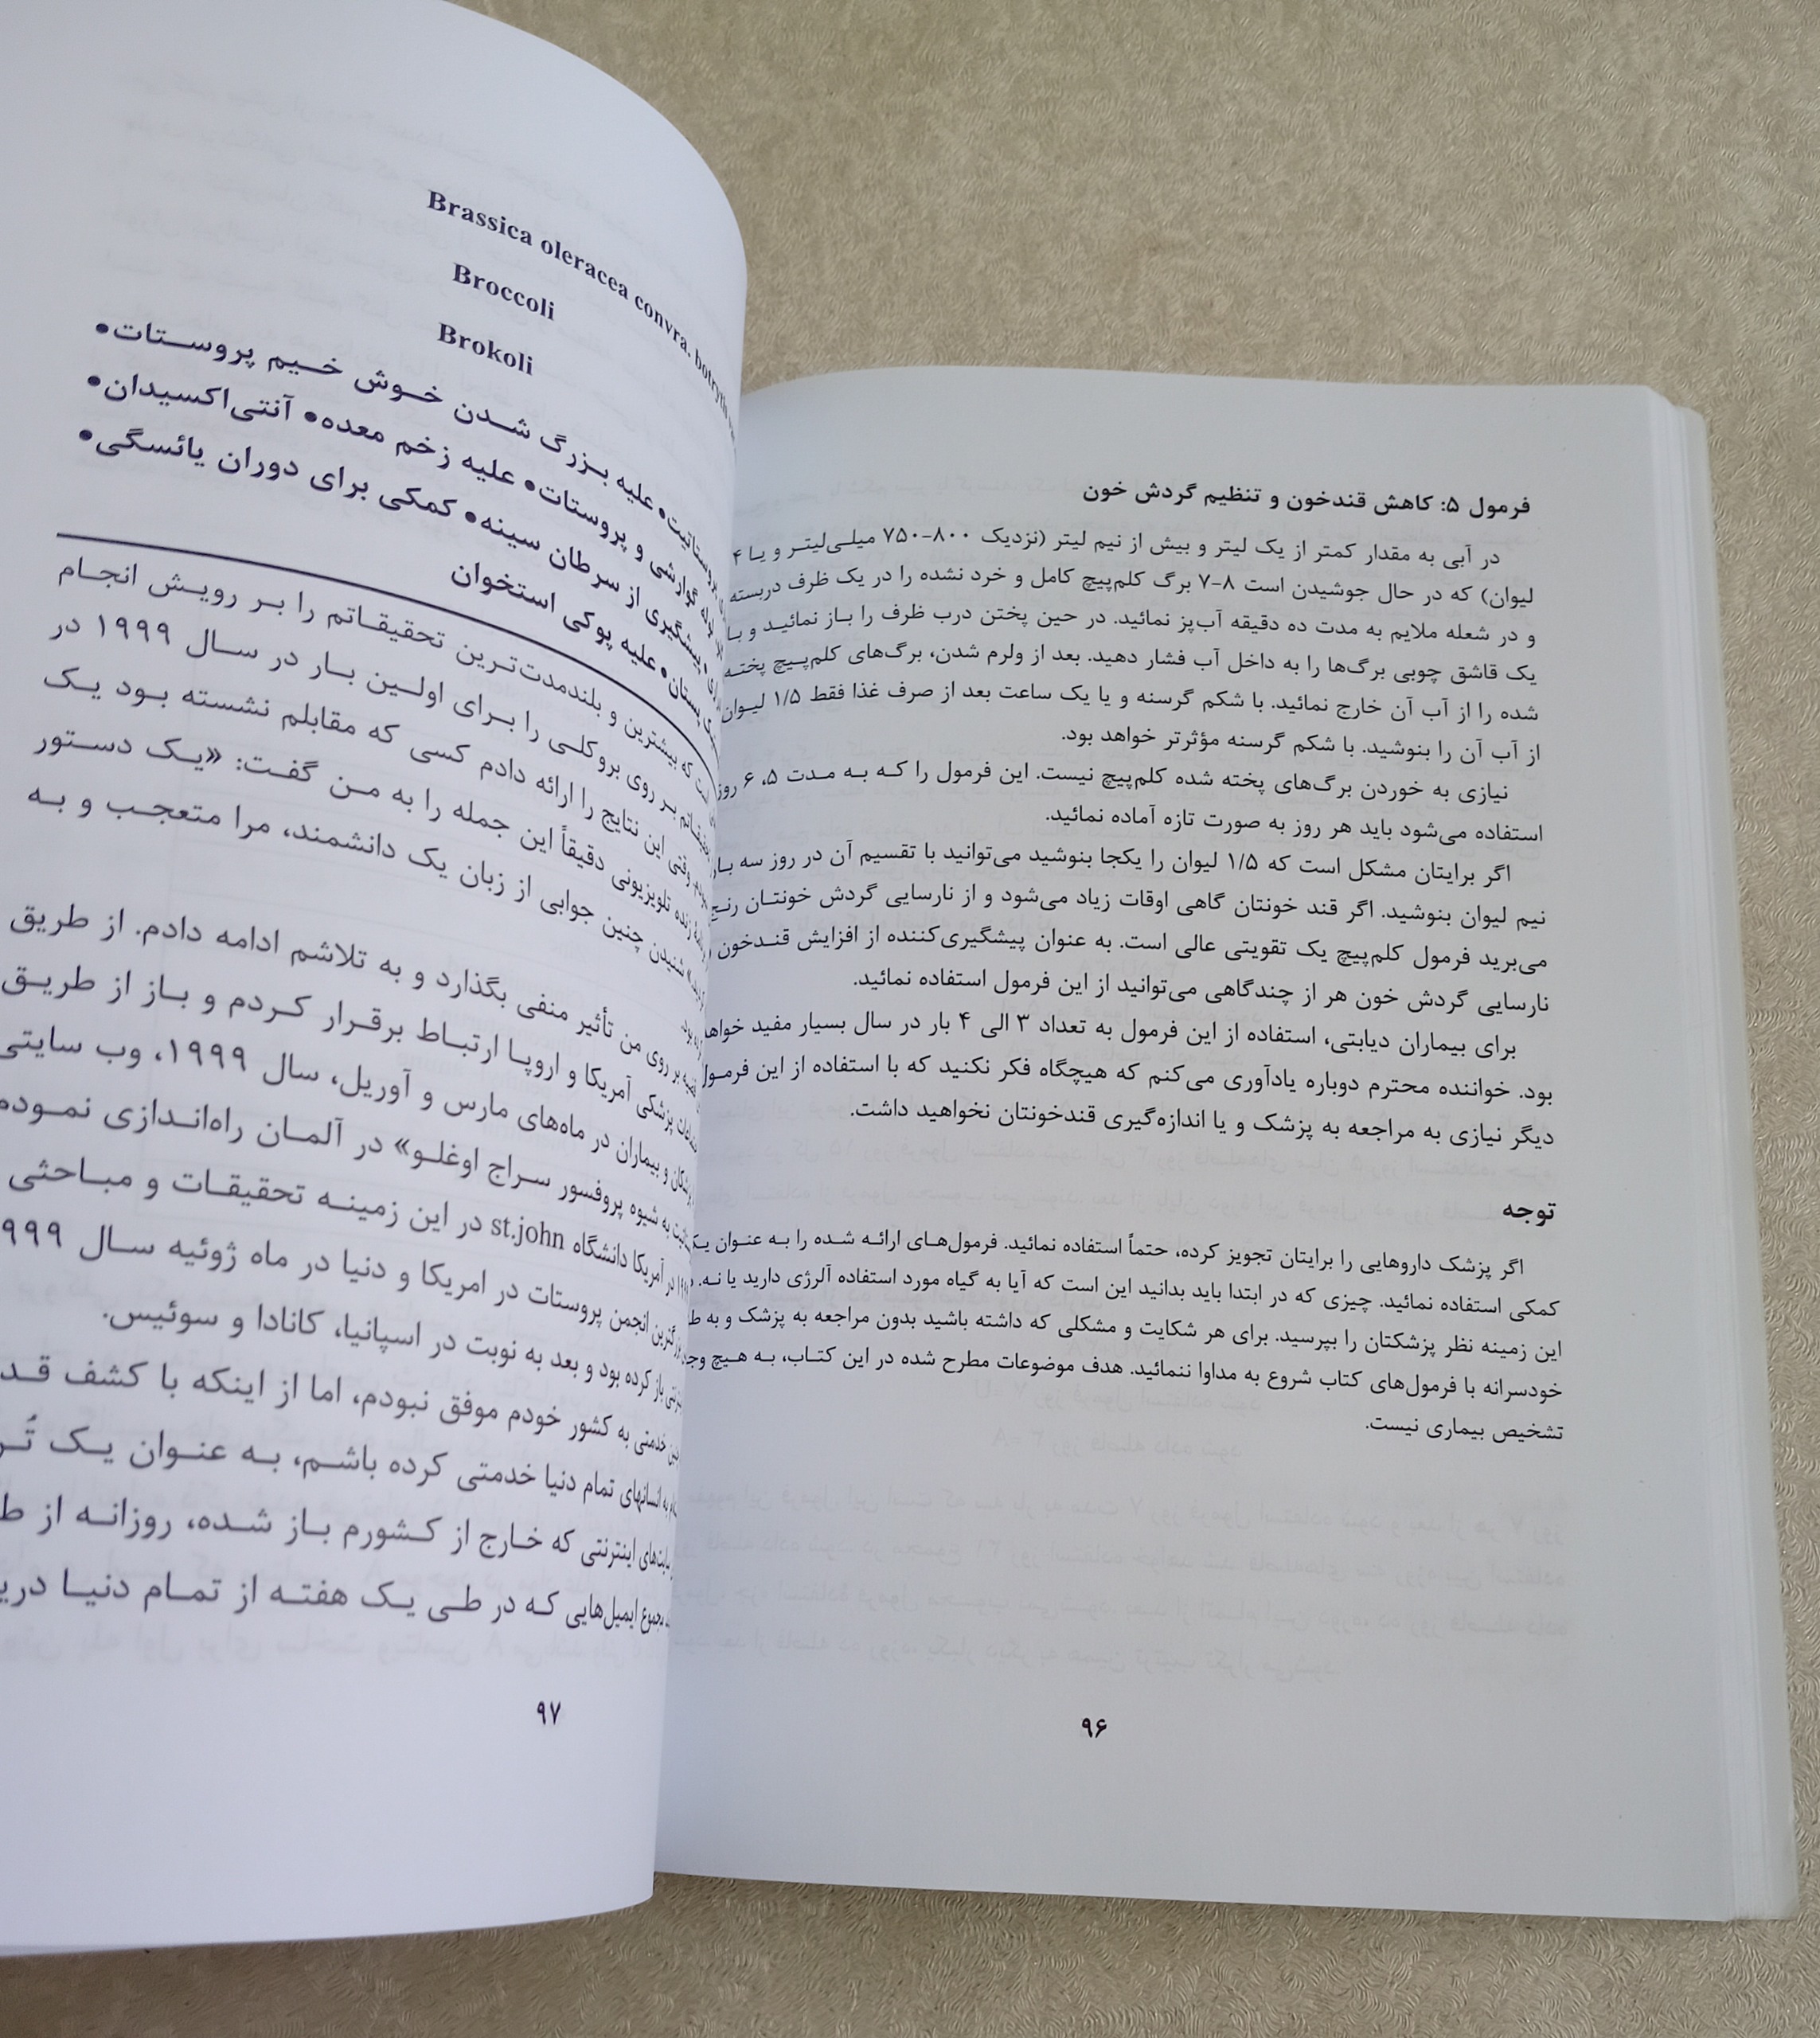 فرمول ۵: کاهش قندخون و تنظیم گردش خون
در آبی به مقدار کمتر از یک لیتر و بیش از نیم لیتر (نزدیک ۸۰۰-۷۵۰ میلی‌لیتر و یا ۴
لیوان) که در حال جوشیدن است ۸-۷ برگ کلم‌پیچ کامل و خرد نشده را در یک ظرف دربسته
و در شعله ملایم به مدت ده دقیقه آب‌پز نمائید. در حین پختن درب ظرف را باز نمائید و با
یک قاشق چوبی برگ‌ها را به داخل آب فشار دهید. بعد از ولرم شدن، برگ‌های کلم‌پیچ پخته
شده را از آب آن خارج نمائید. با شکم گرسنه و یا یک ساعت بعد از صرف غذا فقط ۱/۵ لیوان
از آب آن را بنوشید. با شکم گرسنه مؤثرتر خواهد بود.
نیازی به خوردن برگ‌های پخته شده کلم‌پیچ نیست. این فرمول را که به مدت ۵، ۶ روز
استفاده می‌شود باید هر روز به صورت تازه آماده نمائید.
اگر برایتان مشکل است که ۱/۵ لیوان را یکجا بنوشید می‌توانید با تقسیم آن در روز سه بار
نیم لیوان بنوشید. اگر قند خونتان گاهی اوقات زیاد می‌شود و از نارسایی گردش خونتان رنج
می‌برید فرمول کلم‌پیچ یک تقویتی عالی است. به عنوان پیشگیری‌کننده از افزایش قندخون
نارسایی گردش خون هر از چندگاهی می‌توانید از این فرمول استفاده نمائید.
برای بیماران دیابتی، استفاده از این فرمول به تعداد ۳ الی ۴ بار در سال بسیار مفید خواهد
بود. خواننده محترم دوباره یادآوری می‌کنم که هیچگاه فکر نکنید که با استفاده از این فرمول
دیگر نیازی به مراجعه به پزشک و یا اندازه‌گیری قندخونتان نخواهید داشت.
توجه
اگر پزشک داروهایی را برایتان تجویز کرده، حتماً استفاده نمائید. فرمول‌های ارائه شده را به عنوان یک
کمکی استفاده نمائید. چیزی که در ابتدا باید بدانید این است که آیا به گیاه مورد استفاده آلرژی دارید یا نه.
این زمینه نظر پزشکتان را بپرسید. برای هر شکایت و مشکلی که داشته باشید بدون مراجعه به پزشک و به
خودسرانه با فرمول‌های کتاب شروع به مداوا ننمائید. هدف موضوعات مطرح شده در این کتاب، به هیچ
تشخیص بیماری نیست.
۹۶
Brassica oleracea convra. botrytis
Broccoli
Brokoli
علیه بزرگ شدن خوش خیم پروستات•
گوارشی و پروستات• علیه زخم معده• آنتی‌اکسیدان•
پیشگیری از سرطان سینه• کمکی برای دوران یائسگی•
پستان• علیه پوکی استخوان
است که بیشترین و بلندمدت‌ترین تحقیقاتم را بر رویش انجام
بر روی بروکلی را برای اولین بار در سال ۱۹۹۹ در
وقتی این نتایج را ارائه دادم کسی که مقابلم نشسته بود یک
زنده تلویزیونی دقیقاً این جمله را به من گفت: «یک دستور
شنیدن چنین جوابی از زبان یک دانشمند، مرا متعجب و به
بود.
بر روی من تأثیر منفی بگذارد و به تلاشم ادامه دادم. از طریق
پزشکی آمریکا و اروپا ارتباط برقرار کردم و باز از طریق
و بیماران در ماه‌های مارس و آوریل، سال ۱۹۹۹، وب سایتی
به شیوه پروفسور سراج اوغلو» در آلمان راه‌اندازی نمودم
در آمریکا دانشگاه st.john در این زمینه تحقیقات و مباحثی
انجمن پروستات در امریکا و دنیا در ماه ژوئیه سال
باز کرده بود و بعد به نوبت در اسپانیا، کانادا و سوئیس.
خدمتی به کشور خودم موفق نبودم، اما از اینکه با کشف
به انسانهای تمام دنیا خدمتی کرده باشم، به عنوان یک
اینترنتی که خارج از کشورم باز شده، روزانه از
مجموع ایمیل‌هایی که در طی یک هفته از تمام دنیا
۹۷